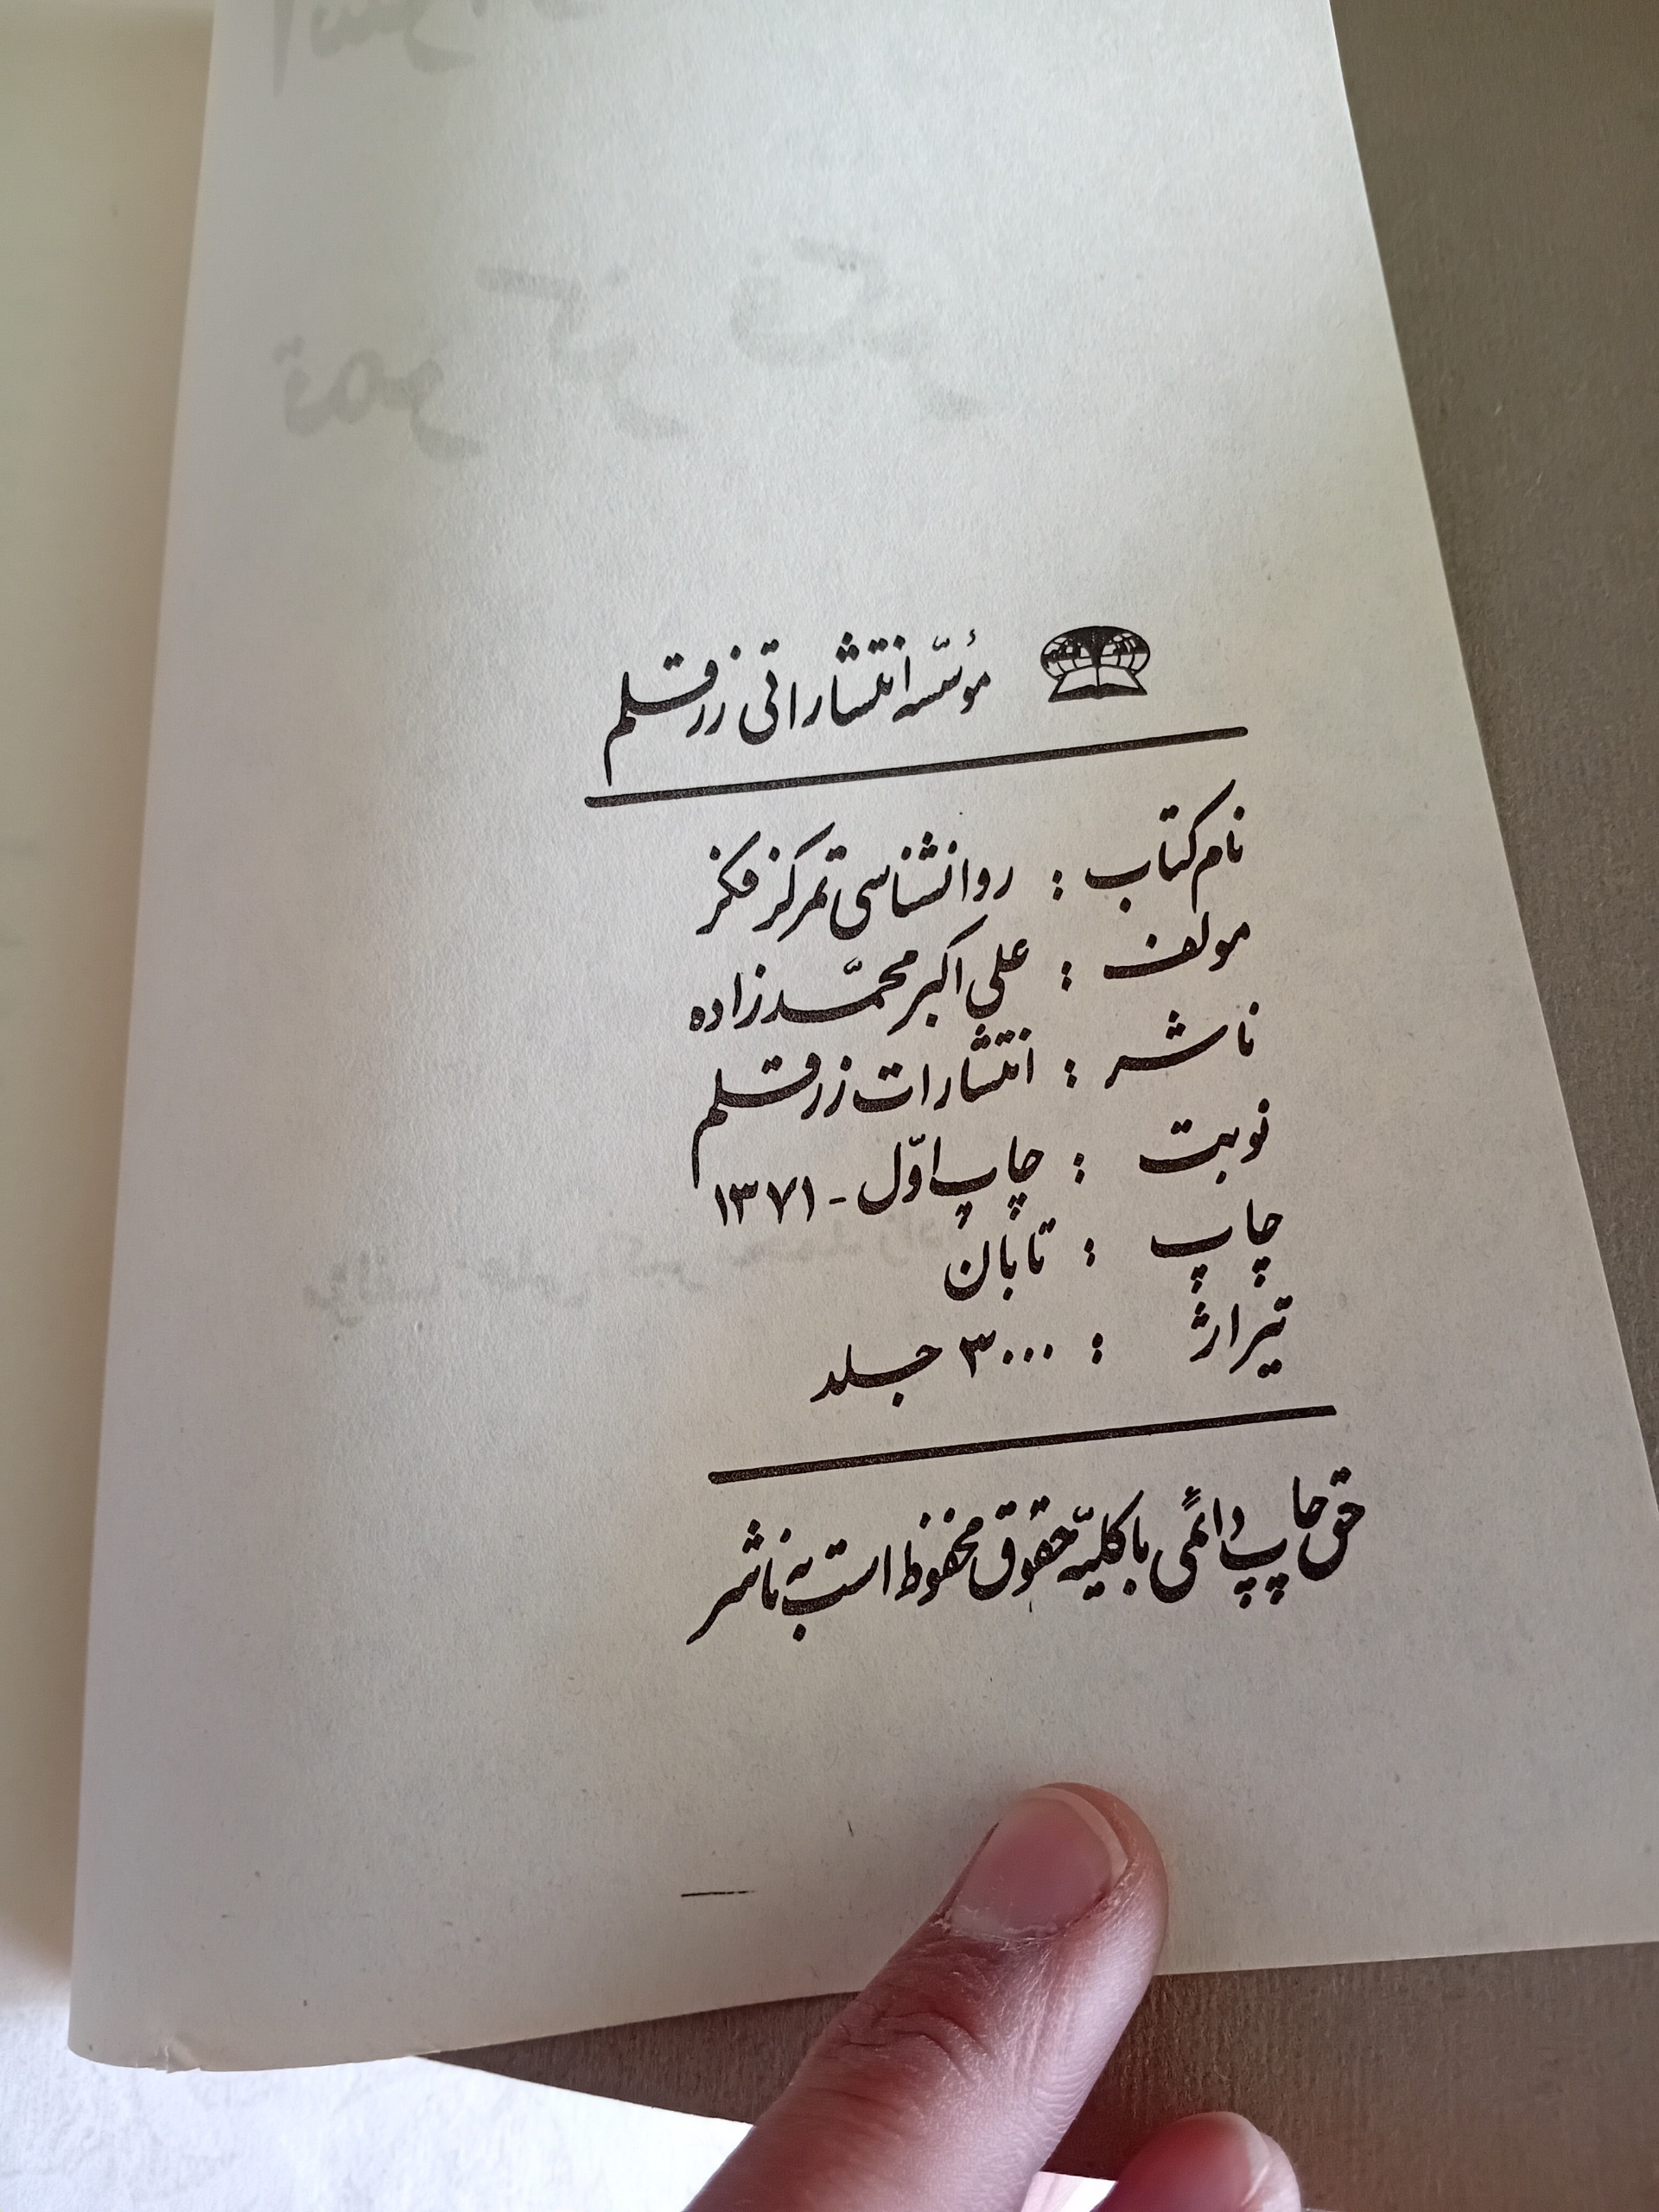 مؤسّسه انتشاراتی زرقلم
نام کتاب : روانشناسی تمرکز فکر
مولف : علی اکبر محمّدزاده
ناشر : انتشارات زرقلم
نوبت : چاپ اوّل - ۱۳۷۱
چاپ : تابان
تیراژ : ۳۰۰۰ جلد
حق چاپ دائمی با کلیّه حقوق محفوظ است به ناشر